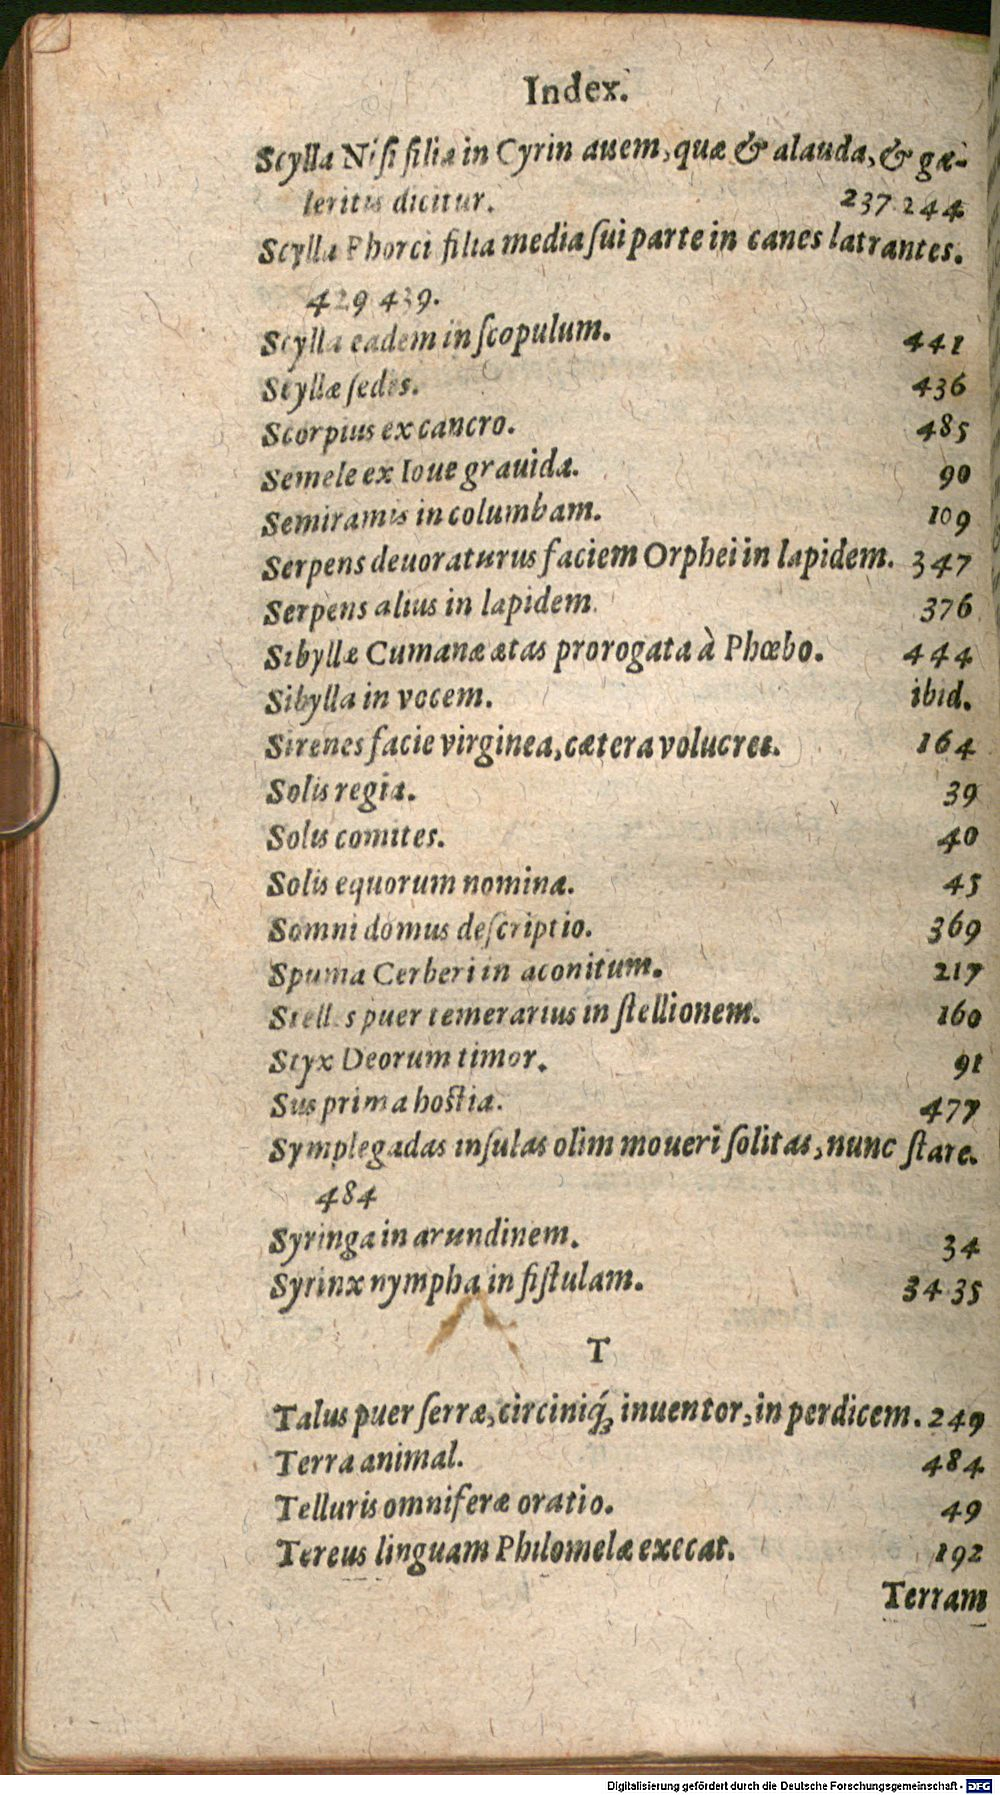 Index.
Scylla Nisi filia in Cyrin auem, quæ & alauda, & gæ-
leritis dicitur. 237 244
Scylla Phorci filia media ſui parte in canes latrantes.
429 439.
Scylla eadem in ſcopulum. 441
Scyllæ ſedes. 436
Scorpius ex cancro. 485
Semele ex Ioue grauida. 90
Semiramis in columbam. 109
Serpens deuoraturus faciem Orphei in lapidem. 347
Serpens alius in lapidem. 376
Sibyllæ Cumanæ ætas prorogata à Phœbo. 444
Sibylla in vocem. ibid.
Sirenes facie virginea, cætera volucres. 164
Solis regia. 39
Solis comites. 40
Solis equorum nomina. 45
Somni domus deſcriptio. 369
Spuma Cerberi in aconitum. 217
Stelles puer temerarius in ſtellionem. 160
Styx Deorum timor. 91
Sus prima hoſtia. 477
Symplegadas inſulas olim moueri ſolitas, nunc ſtare.
484
Syringa in arundinem. 34
Syrinx nympha in fiſtulam. 34 35
T
Talus puer ſerræ, circiniq́; inuentor, in perdicem. 249
Terra animal. 484
Telluris omniferæ oratio. 49
Tereus linguam Philomelæ execat. 192
Terram
Digitalisierung gefördert durch die Deutsche Forschungsgemeinschaft - DFG